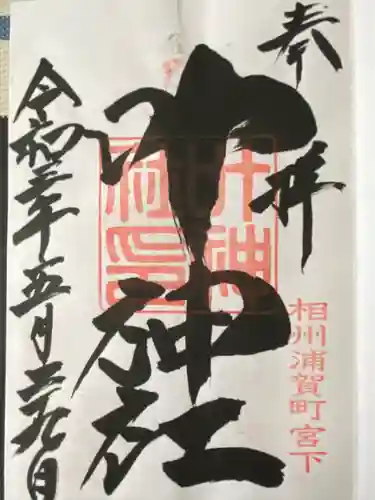 奉拝
相州浦賀町宮下
叶神社
叶神社印
令和三年五月二十九日